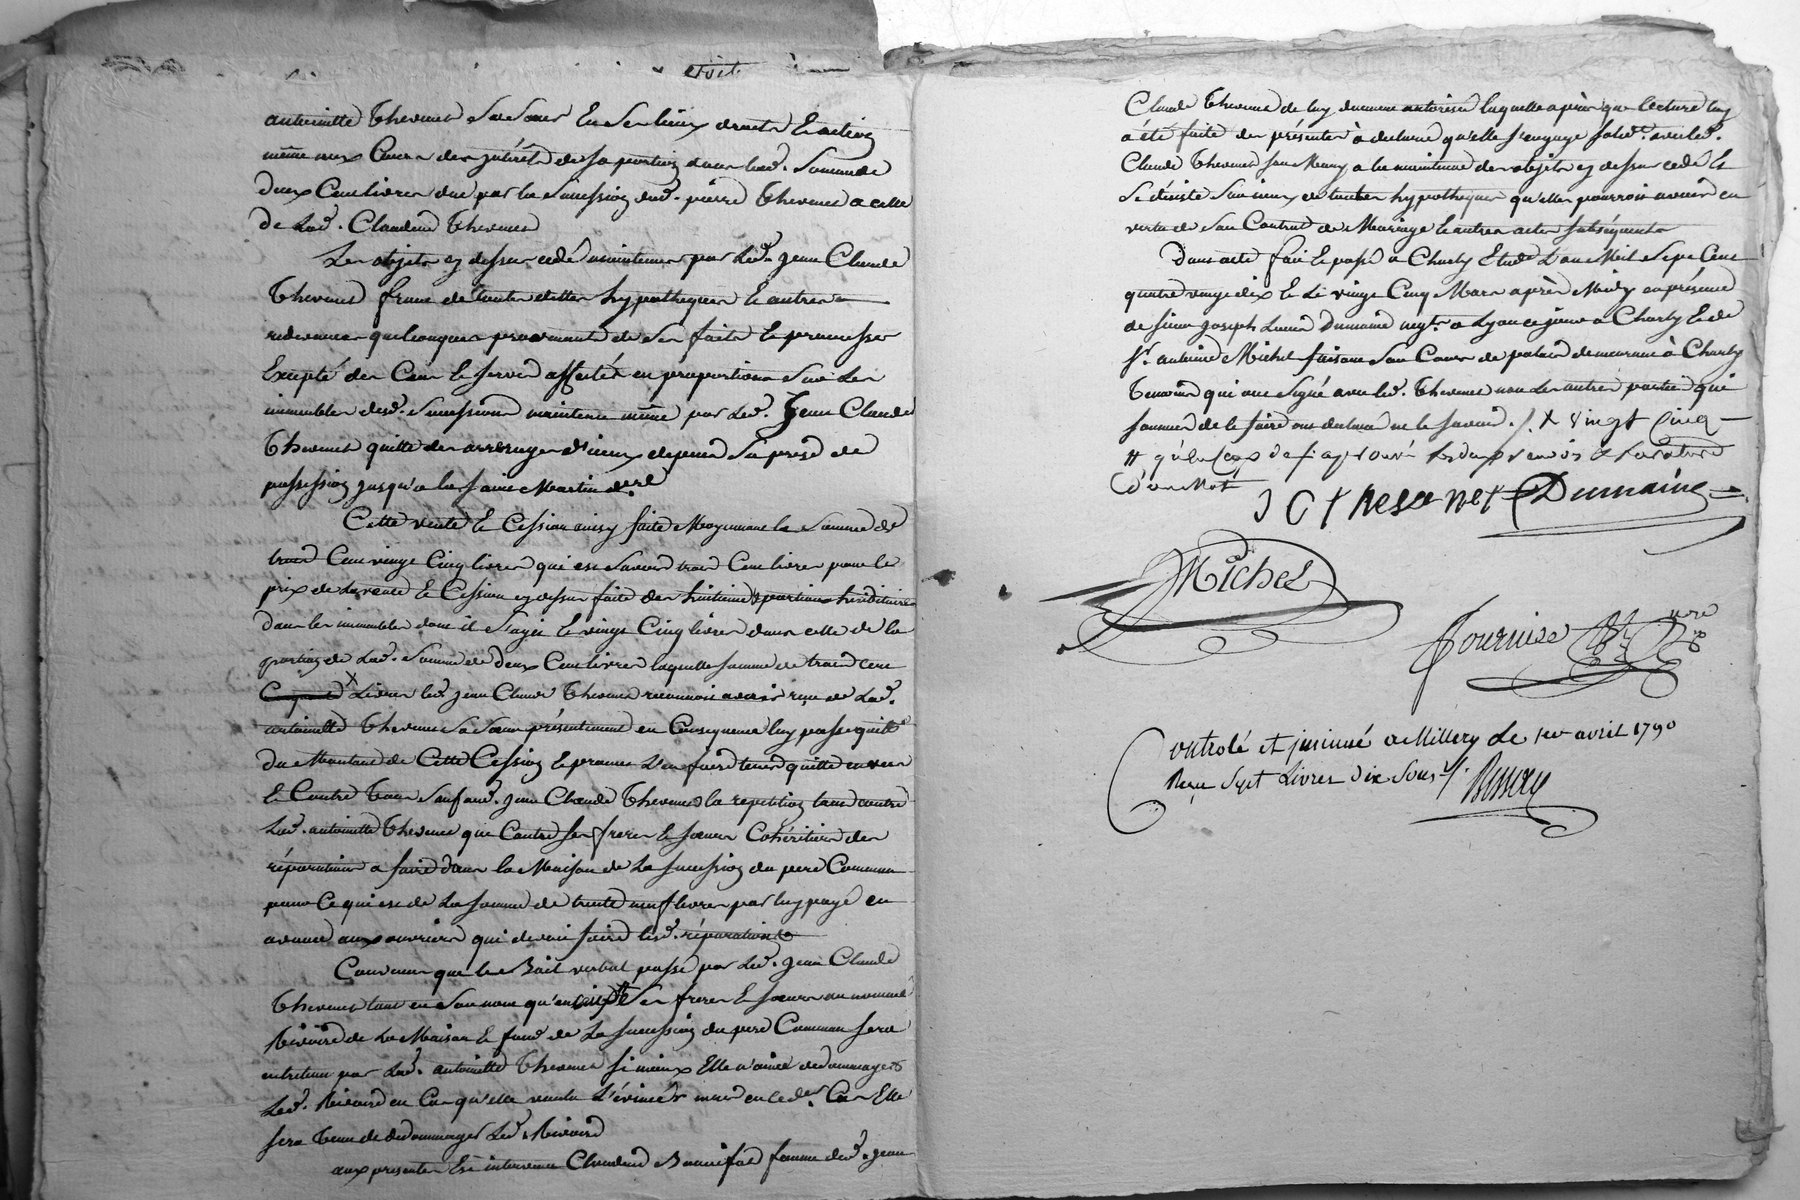 antoinette Thevenet Sa Soeur En Ses lieux droits Et actions
même aux Cours des jntérêts de Sa portion dans lad. Somme de
deux Cent livres due par la Succession dud. pierre Thevenet a celle
de Lad. Claudine Thevenet
Les objets cy dessus cédé maintenus par Led. jean Claude
Thevenet francs de toutes dettes hypotheques Et autres
redevances quelconques provenants de Ses faits Et promesses
Excepté des Cens Et Servis affectés en proportions Sur Les
immeubles desd. Successions maintenu même par Led. Jean Claude
Thevenet quitte des arrerages d'iceux depuis Sa prise de
possession jusqu'a la Saint Martin der.re
Cette vente Et Cession ainsy faite Moyennant la Somme de
trois Cent vingt Cinq livres qui est Savoir trois Cent livres pour le
prix de La vente Et Cession cy dessus faite des huitieme portions héréditaires
dans les immeubles dont il S'agit Et vingt Cinq livres dans celle de la
portion de Lad. Somme de deux Cent livres laquelle Somme de trois cent
x Livres led. jean Claude Thevenet reconnoit avoir reçu de Lad.
antoinette Thevenet Sa Soeur présentement en Consequence luy passe quitte
du Montant de Cette Cession Et promet L'en faire tenir quitte envers
Et Contre Tous Sauf aud. jean Claude Thevenet la repetition tant contre
Lad. antoinette Thevenet que Contre Ses freres Et Soeurs Cohéritiers des
réparations a faire dans la Maison de La Succession du pere Commun
pour Ce qui est de La Somme de trente neuf livres par luy payé en
avance aux ouvriers qui devoit faire lesd. réparations
Convenu que le Bail verbal passé par Led. Jean Claude
Thevenet tant en Son nom qu'en Ses freres Et Soeurs au nommé
Riviére de La Maison Et fond de La Succession du pere Commun Sera
entretenu par Lad. antoinette Thevenet Si mieux Elle n'aime dedommager
Led. en Cas qu'elle veuille L'évincer Cas Elle
Sera Tenue de dedommager Led.
aux presentes Est intervenue Claudine Bonnefoid femme dud. jean
Claude Thevenet de luy duement autorisé laquelle après que lecture luy
a été faite des présentes a déclaré qu'elle S'engage Solid. avec led.
Claude Thevenet Son Mary a la maintenue des objets cy dessus cédé Et
Se désiste Sur iceux de toutes hypotheques qu'elles pourroit avoir en
vertu de Son Contrat de Mariage Et autres actes Subséquents
Dont acte fait Et passé a Charly Etude L'an Mil Sept Cent
quatre vingt dix Et Le vingt Cinq Mars après Midy en présence
de Sieur Joseph Dumaine negt. a Lyon ce jour a Charly Et de
Sr. antoine Michel faisant Son Cours de palais demeurant à Charly
Temoins qui ont Signé avec led. Thevenet non Les autres parties qui
Sommées de le faire ont declaré ne le Savoir ./. x vingt Cinq
# approuvé les deux renvois et la rature
d'un Mot
J C Thevenet Dumaine
Michel
Fournier nore
Controlé et jnsinué a Millery Le 1er avril 1790
Reçu Sept Livres Dix Sous